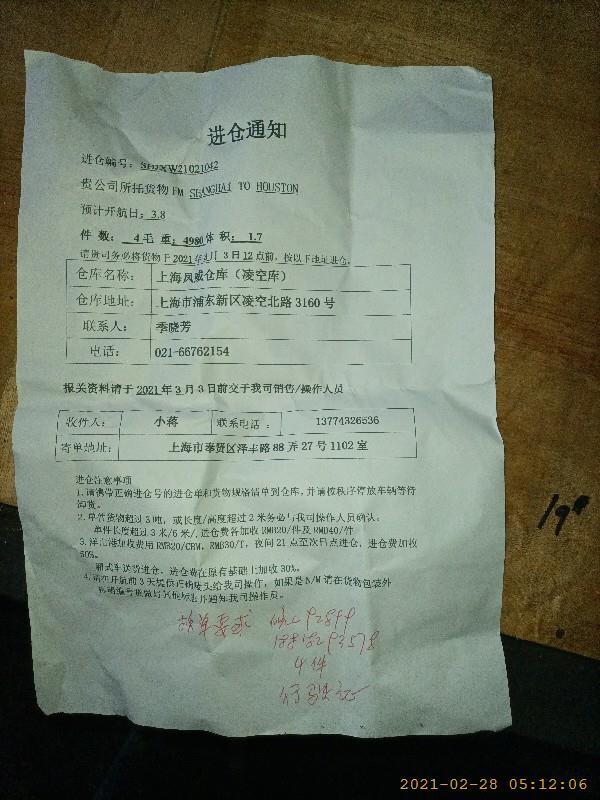 进仓通知
进仓编号：
贵公司所托货物FM SHANGHAI TO HOUSTON
预计开航日：3.8
件 数： 4 毛 重：4980 体 积：1.7
请贵司务必将货物于2021年3月 3日12点前，按以下地址进仓。
仓库名称： 上海凤威仓库（凌空库）
仓库地址： 上海市浦东新区凌空北路3160号
联系人： 季晓芳
电话： 021-66762154
报关资料请于2021年3月3日前交于我司销售/操作人员
收件人： 小蒋 联系电话： 13774326536
寄单地址： 上海市奉贤区泽丰路88弄27号1102室
进仓注意事项
1.请携带正确进仓号的进仓单和货物规格清单到仓库，并请按秩序停放车辆等待
卸货。
2.单件货物超过3吨，或长度/高度超过2米务必与我司操作人员确认。
单件长度超过3米/6米/，进仓费各加收RMB20/件及RMB40/件
3.洋山港加收费用RMB20/CBM，RMB30/T，夜间21点至次日点进仓，进仓费加收
50%。
厢式车送货进仓，进仓费在原有基础上加收30%。
4.请在开航前3天提供正确唛头给我司操作，如果是N/M请在货物包装外
操作员。
4件
行驶证
2021-02-28 05:12:06